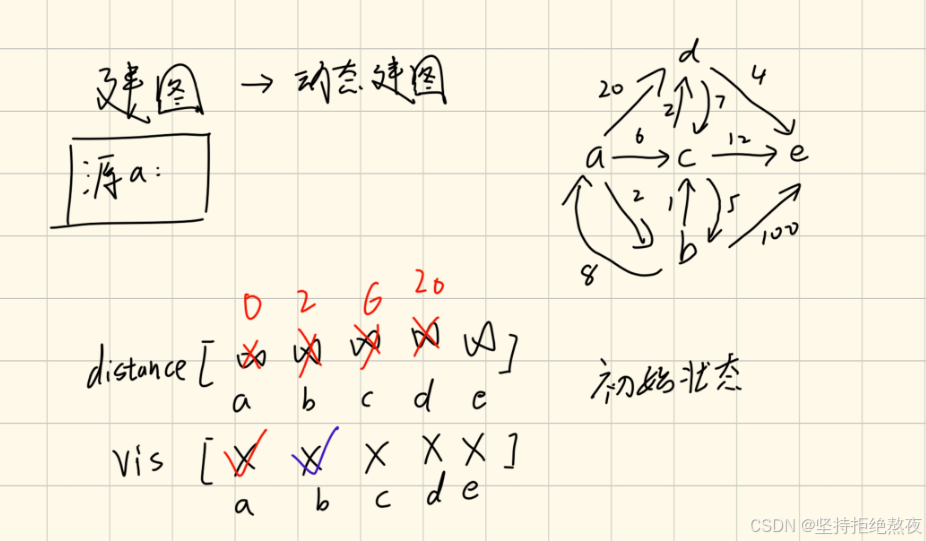 建图 → 动态建图
源a:
d
20 2 7 4
a 6 c 12 e
2 1 5
8 b 100
0 2 6 20
distance [ ∞ ∞ ∞ ∞ ∞ ]
a b c d e
初始状态
vis [ X X X X X ]
a b c d e
CSDN @坚持拒绝熬夜